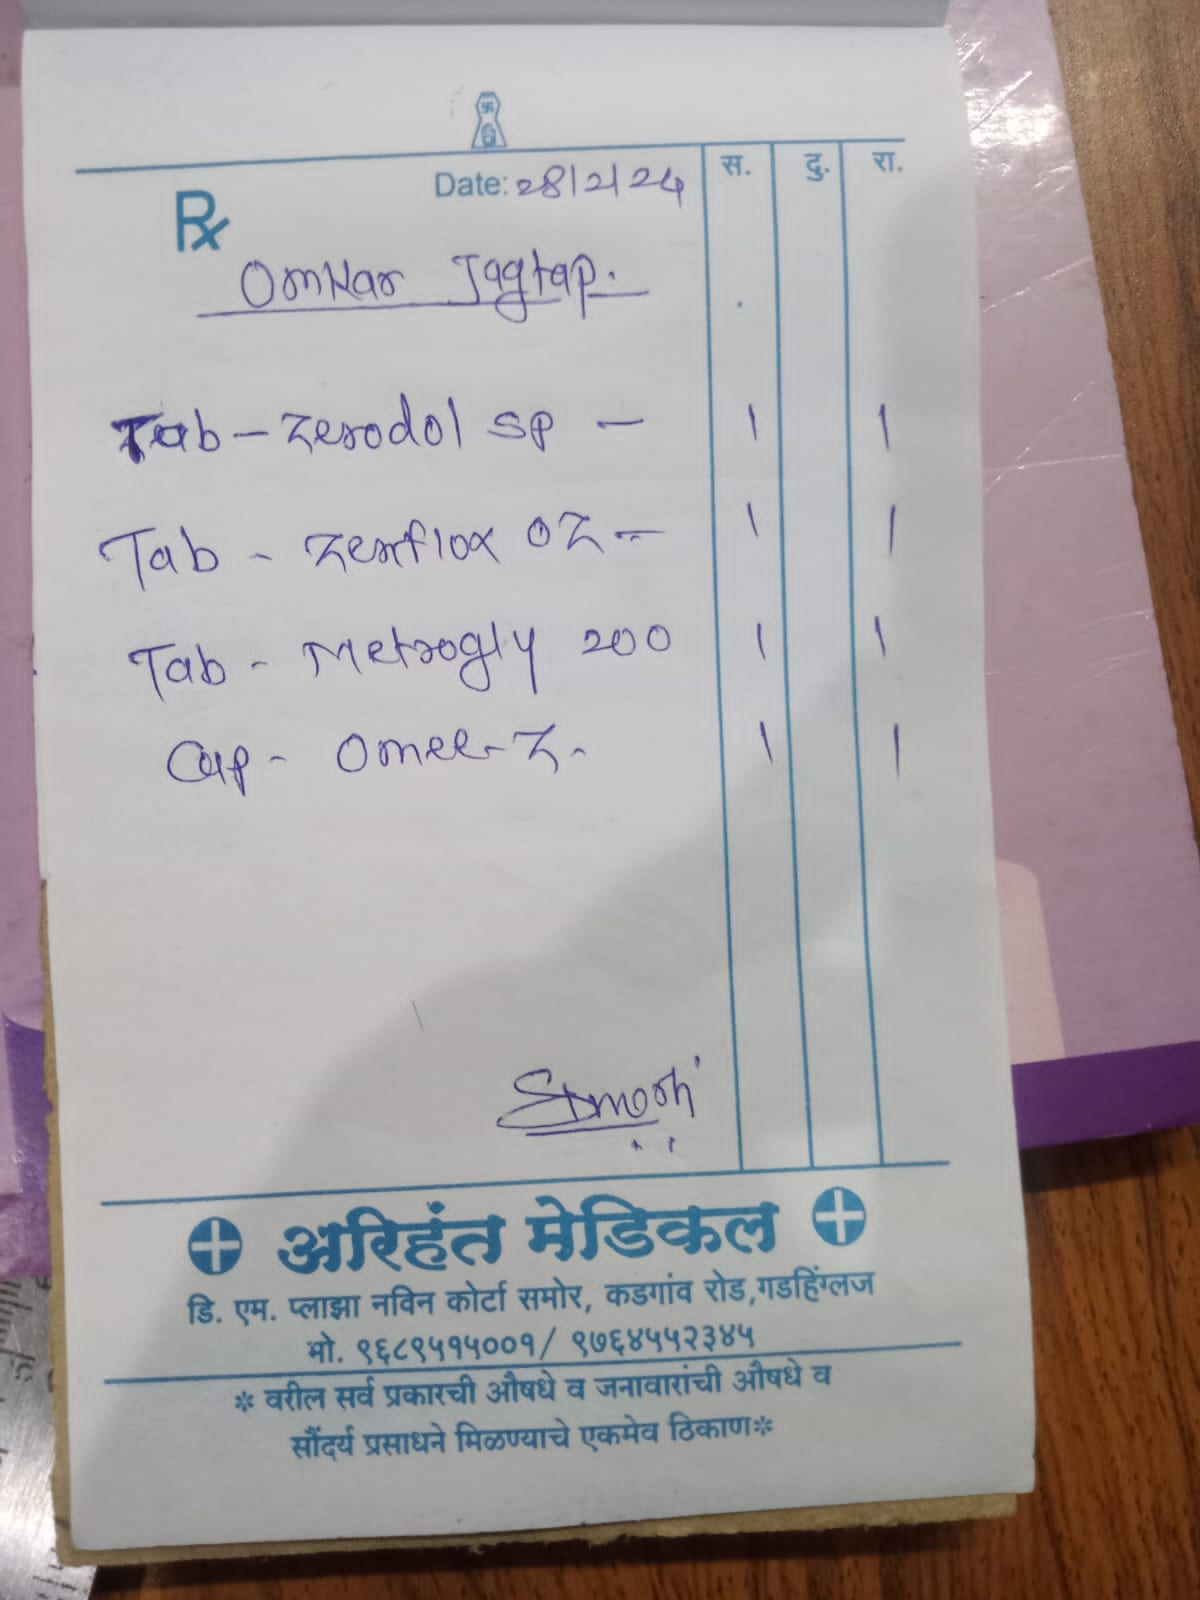 Date: 28/2/24 स. दु. रा.
Rx
Omkar Jagtap.
Tab - Zerodol SP - 1 1
Tab - Zenflox OZ - 1 1
Tab - Metrogly 200 1 1
Cap - Omee-Z. 1 1
अरिहंत मेडिकल
डि. एम. प्लाझा नविन कोर्टा समोर, कडगांव रोड,गडहिंग्लज
मो. ९६८९५१५००१/ ९७६४५५२३४५
* वरील सर्व प्रकारची औषधे व जनावारांची औषधे व
सौंदर्य प्रसाधने मिळण्याचे एकमेव ठिकाण*